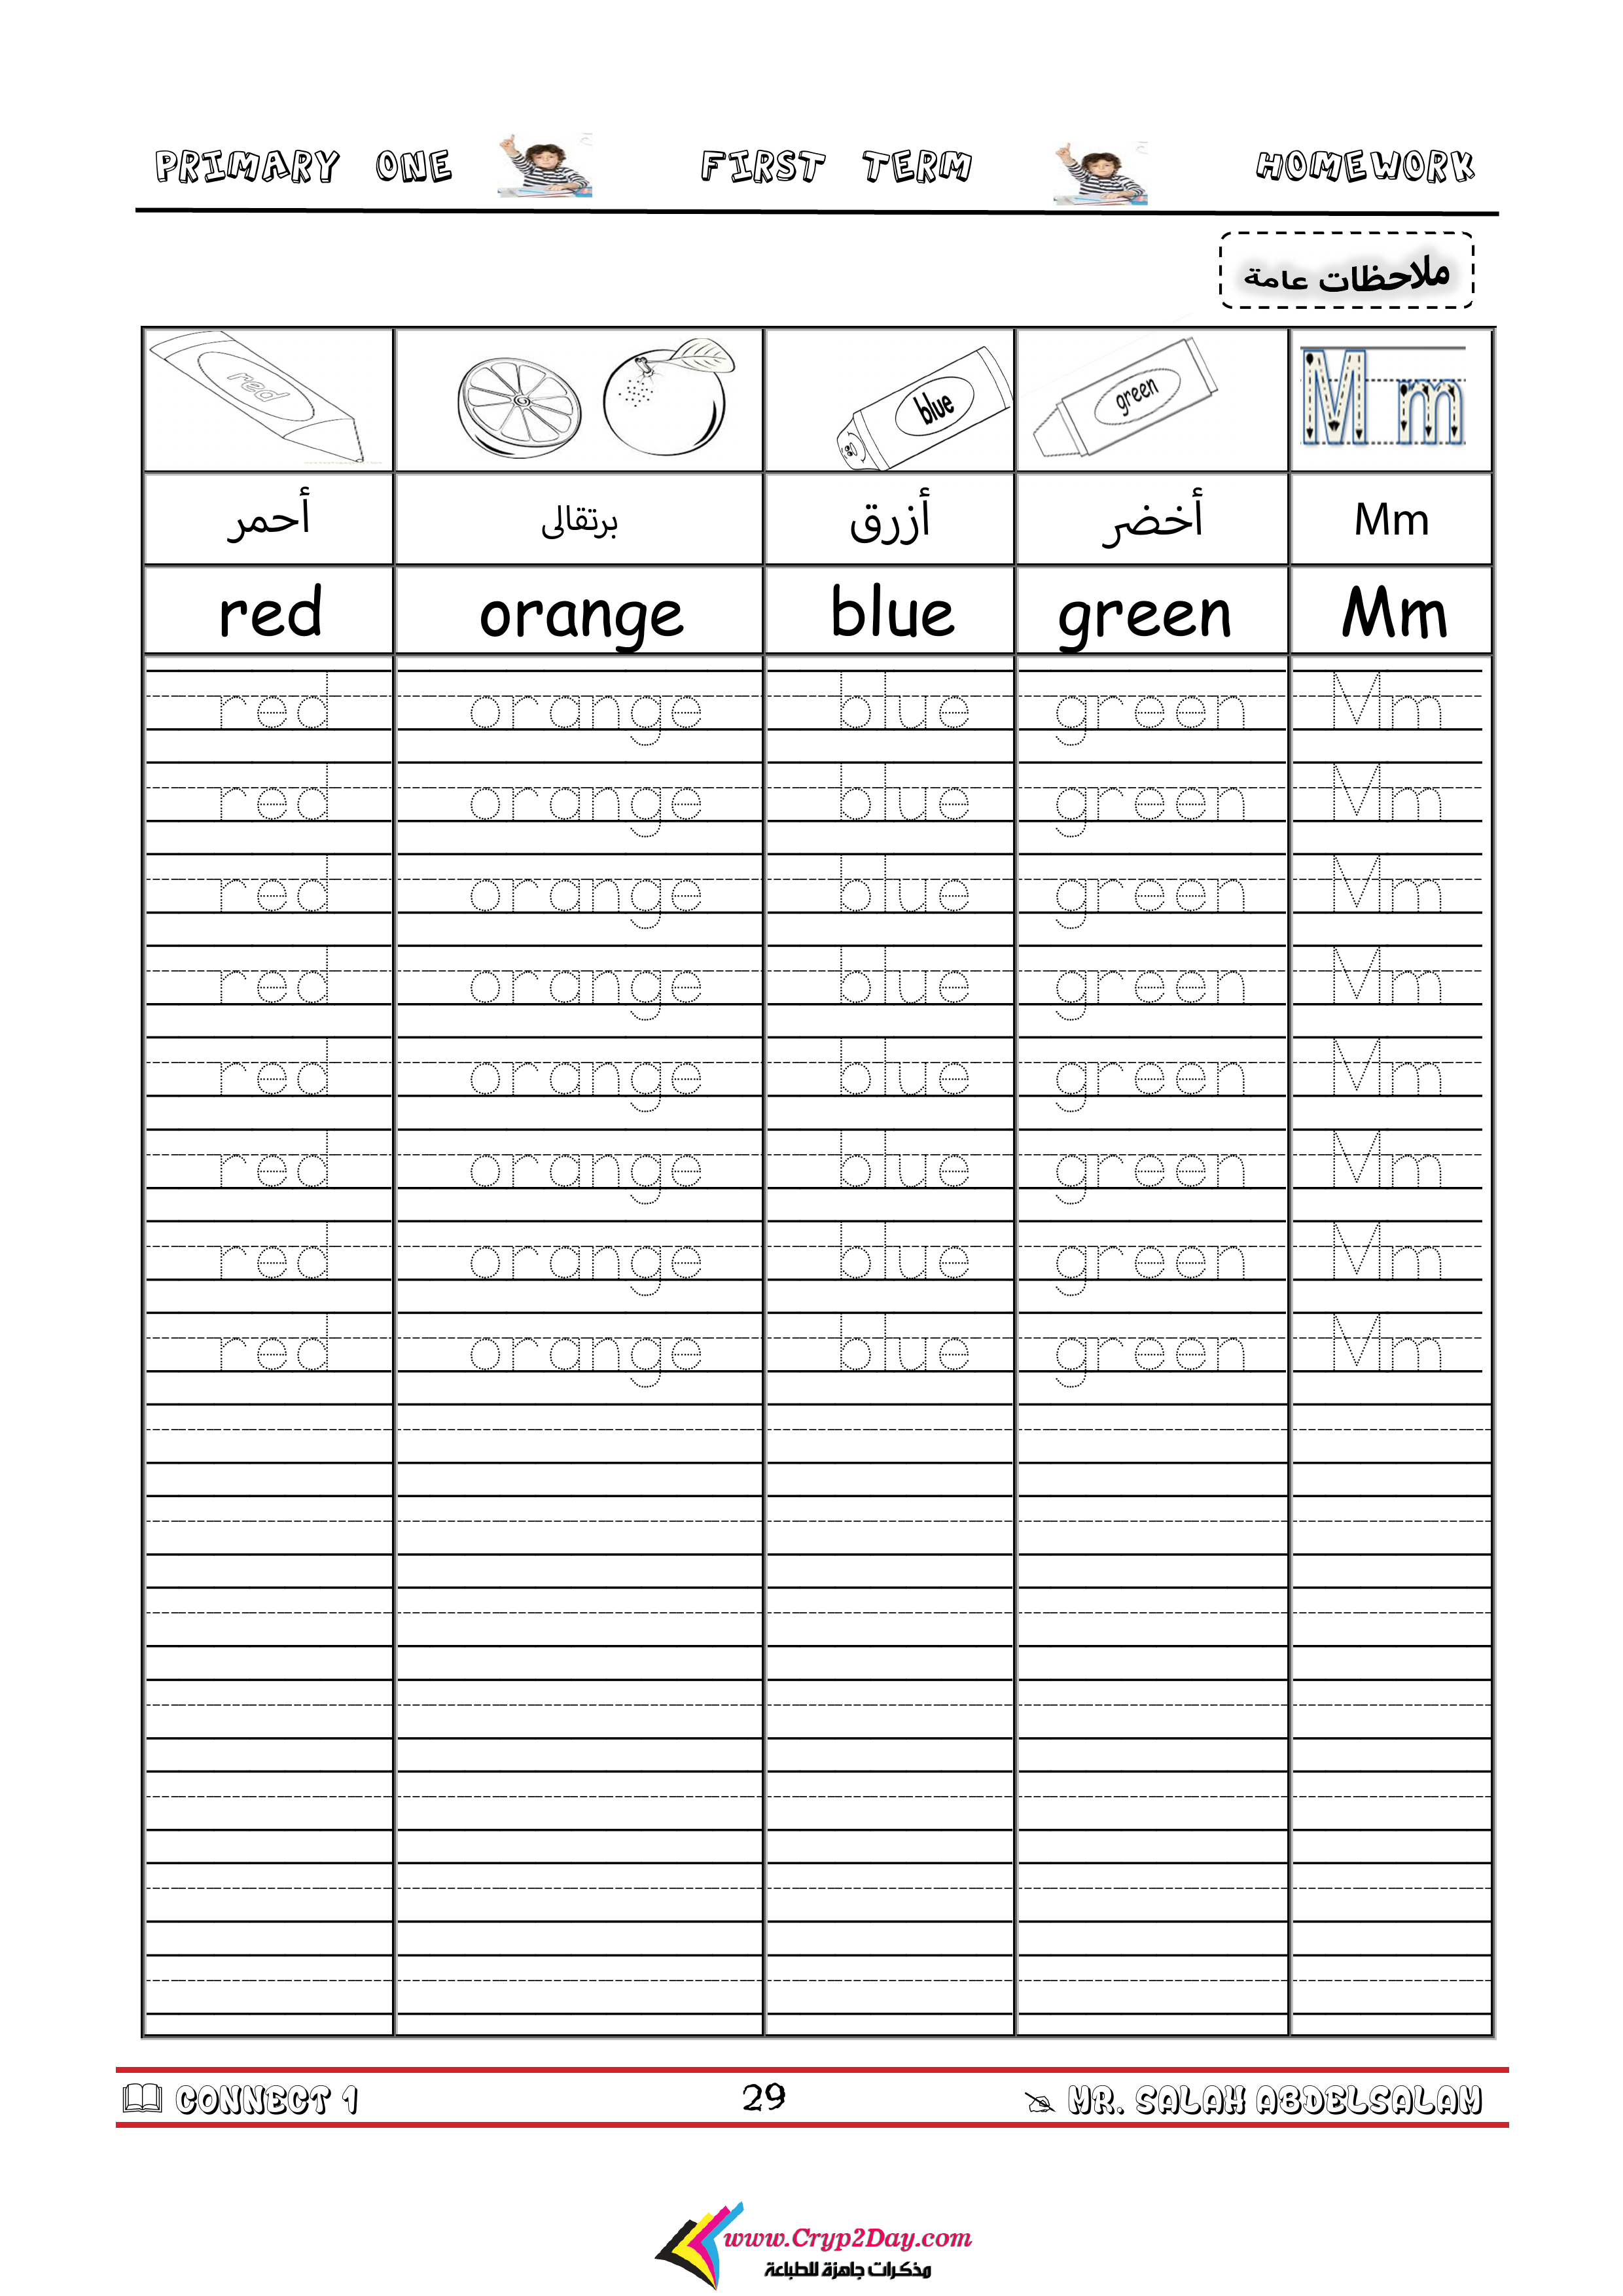 PRIMARY ONE FIRST TERM HOMEWORK
ملاحظات عامة
red blue green M m
أحمر برتقالى أزرق أخضر Mm
red orange blue green Mm
red orange blue green Mm
red orange blue green Mm
red orange blue green Mm
red orange blue green Mm
red orange blue green Mm
red orange blue green Mm
red orange blue green Mm
red orange blue green Mm
CONNECT 1 29 MR. SALAH ABDELSALAM
www.Cryp2Day.com
مذكرات جاهزة للطباعة